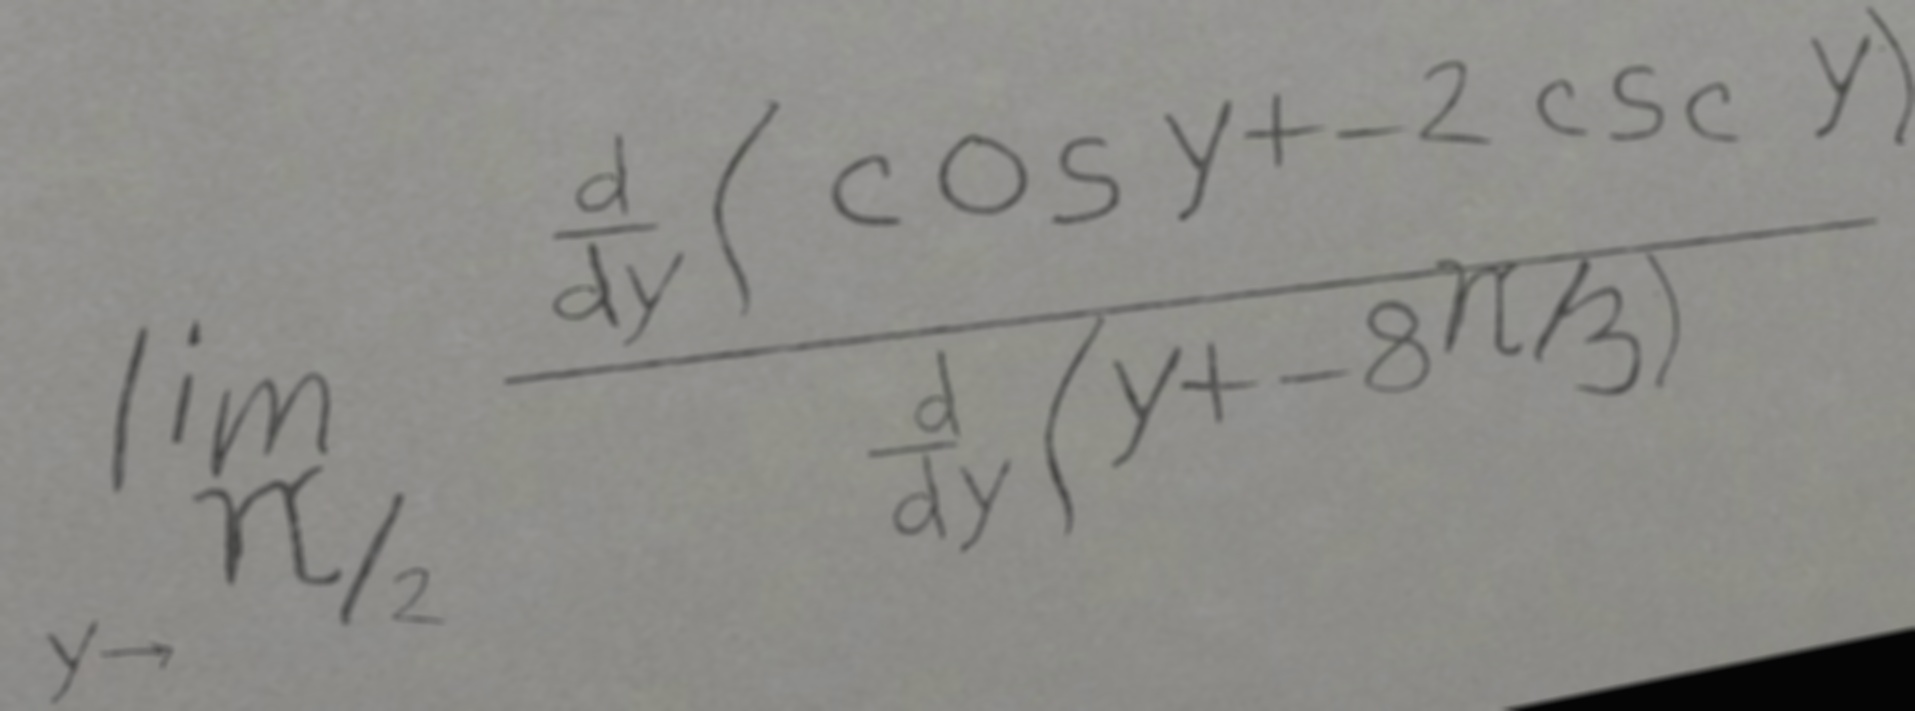 lim y→π/2 d/dy(cos y+-2 csc y) / d/dy(y+-8π/3)